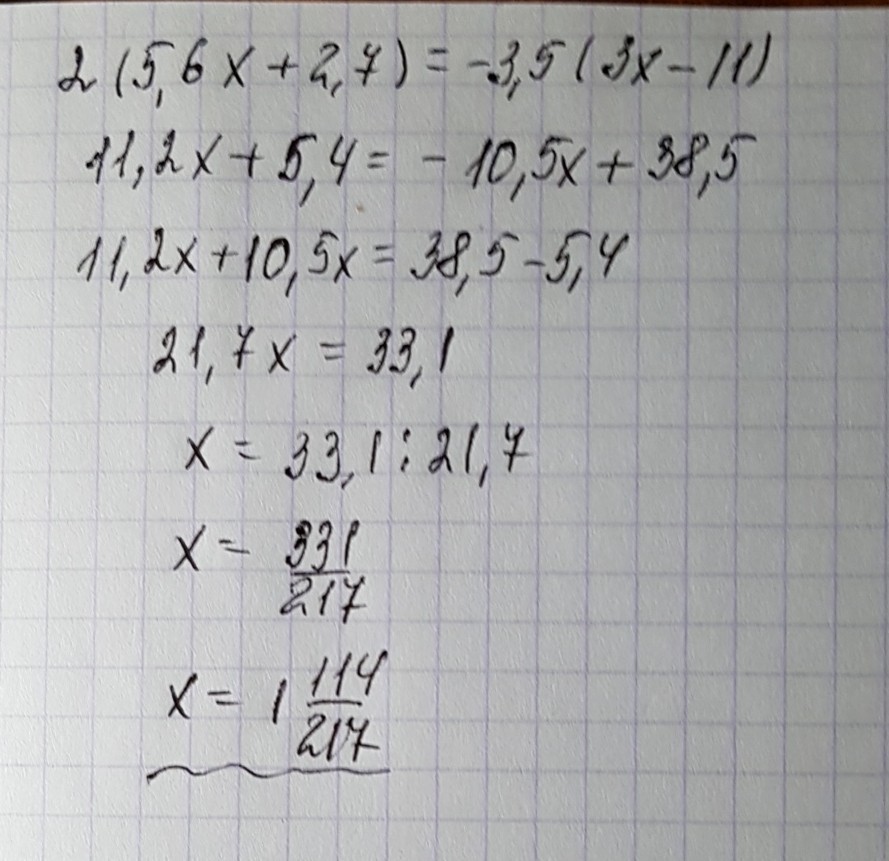 2(5,6x+2,7)=-3,5(3x-11)
11,2x+5,4=-10,5x+38,5
11,2x+10,5x=38,5-5,4
21,7x=33,1
x=33,1:21,7
x=331/217
x=1 114/217